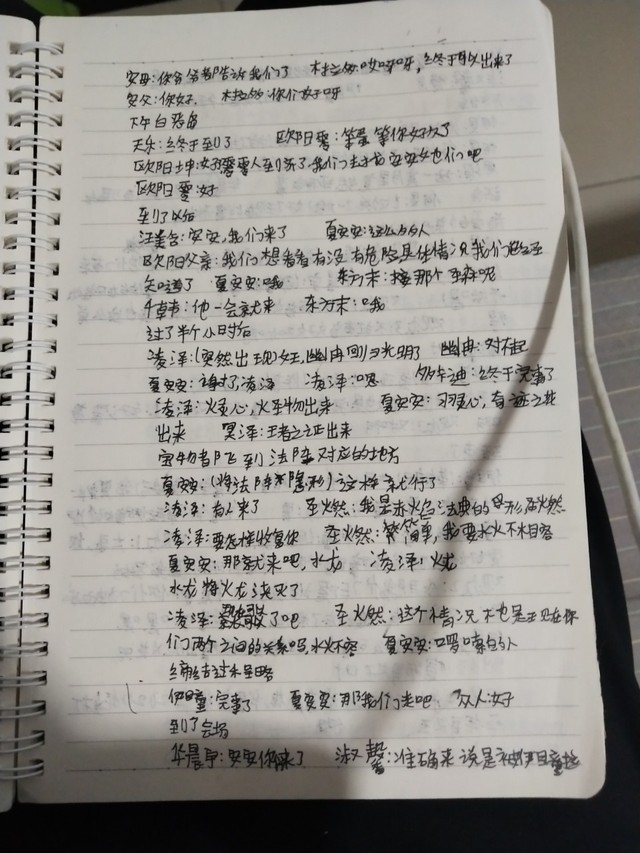 安母:你爷爷都告诉我们了 杜拉的:哎呀呀,终于可以出来了
安父:你好 杜拉的:你们好呀
下午
天乐:终于到了 欧阳 : 等你好久了
欧阳坤:好 人到齐了,我们去找安安她们吧
欧阳 :好
到了以后
汪美含:安安,我们来了 夏安安:这么多人
欧阳父亲:我们想看看有没有危险具体情况我们
知道了 夏安安:哦 东方末:接那个 呢
千韩:他一会就来 东方末:哦
过了半个小时后
凌泽:(突然出现)女王,幽冉回归光明了 幽冉:对不起
夏安安: 了凌泽 凌泽:嗯 :终于完事了
凌泽:火圣心,火圣物出来 夏安安:羽圣心,奇迹之花
出来 冥泽:王者之证出来
宝物都飞到法阵对应的地方
夏安安:(将法阵隐形)这样就行了
凌泽:有人来了 圣火然:我是赤火焰法典的 形圣火然
凌泽:要怎样收复你 圣火然:简单,我要水火不相容
夏安安:那就来吧,水龙 凌泽:火龙
水龙将火龙浇灭了
凌泽: 了吧 圣火然:这个情况不也是王见在你
们两个之间的关系吗,水火不容 夏安安:啰嗦的人
缔结过程略
伊瞳:完事了 夏安安:那我们走吧 众人:好
到了会场
华晨宇:安安你来了 淑馨:准确来说是被伊瞳